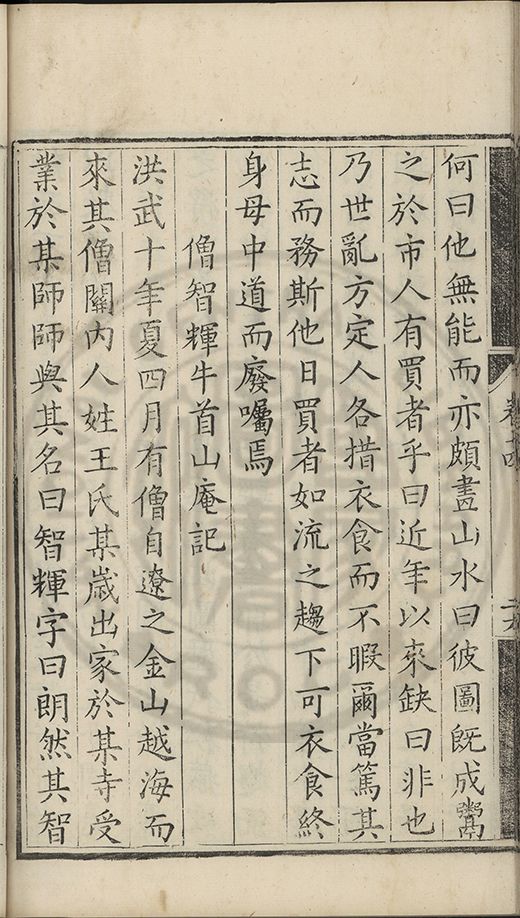 何曰他無能而亦頗畫山水曰彼圖旣成鬻
之於市人有買者乎曰近年以來缺曰非也
乃世亂方定人各措衣食而不暇爾當篤其
志而務斯他日買者如流之趨下可衣食終
身毋中道而廢囑焉
僧智輝牛首山庵記
洪武十年夏四月有僧自遼之金山越海而
來其僧關內人姓王氏某歲出家於某寺受
業於某師師與其名曰智輝字曰朗然其智
卷十四